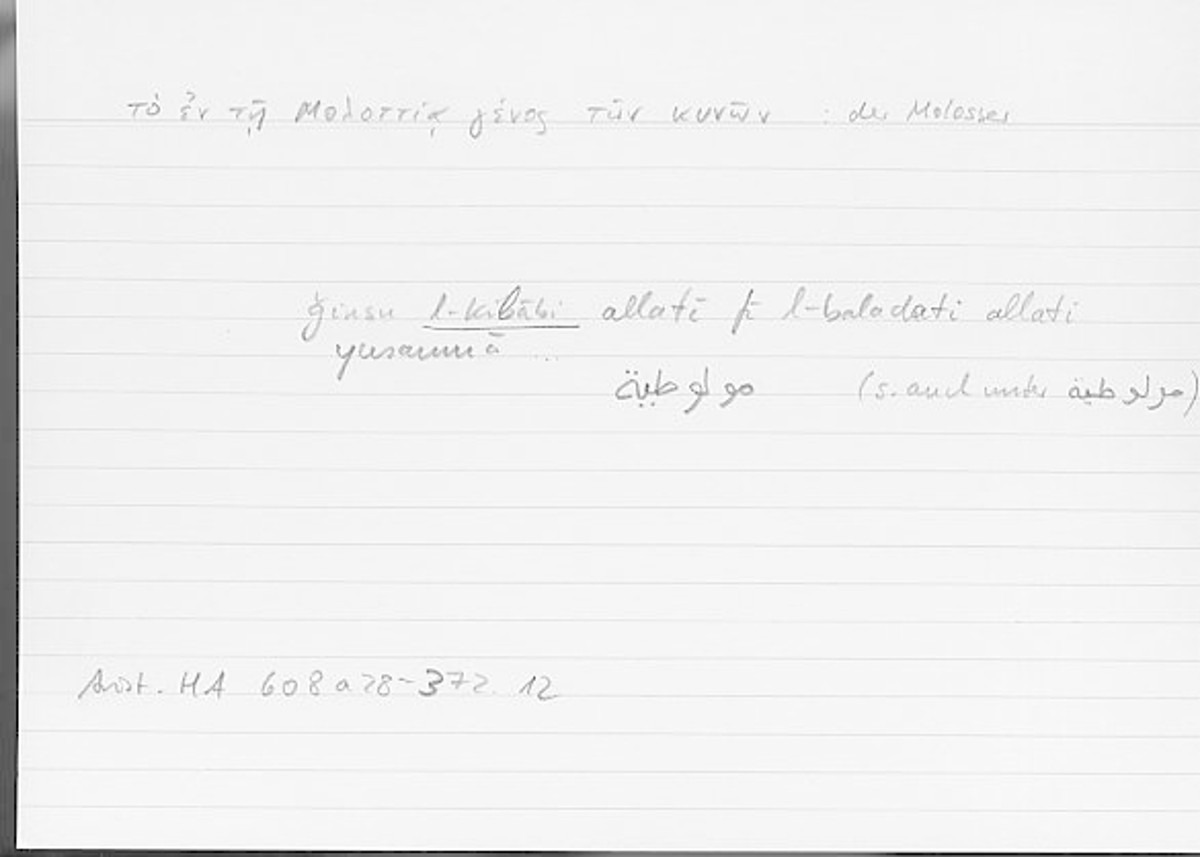 τὸ ἐν τῇ Μολοττίᾳ γένος τῶν κυνῶν : der Molosser
ǧinsu l-kilābi allatī fī l-baladati allati
yusammā ...
مولوطية (s. auch unter مولوطية)
Arist. HA 608 a 28 - 372. 12